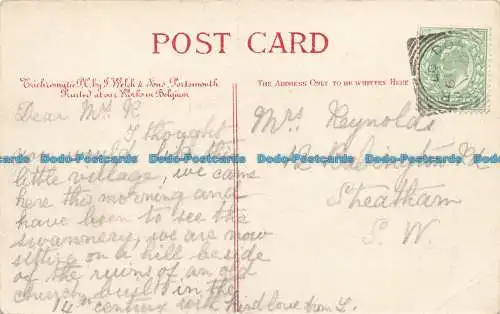 POST CARD
Trichromatic P.C. by J. Welch & Sons, Portsmouth
Printed at our Works in Belgium
THE ADDRESS ONLY TO BE WRITTEN HERE
Dear Mrs R
I thought
you would like this
little village, we came
here this morning and
have been to see the
swannery, we are now
sitting on a hill beside
of the ruins of an old
church built in the
14th century with kind love from L.
Mrs Reynolds
12 Babington Rd
Streatham
S. W.
Dodo-Postcards Dodo-Postcards Dodo-Postcards Dodo-Postcards